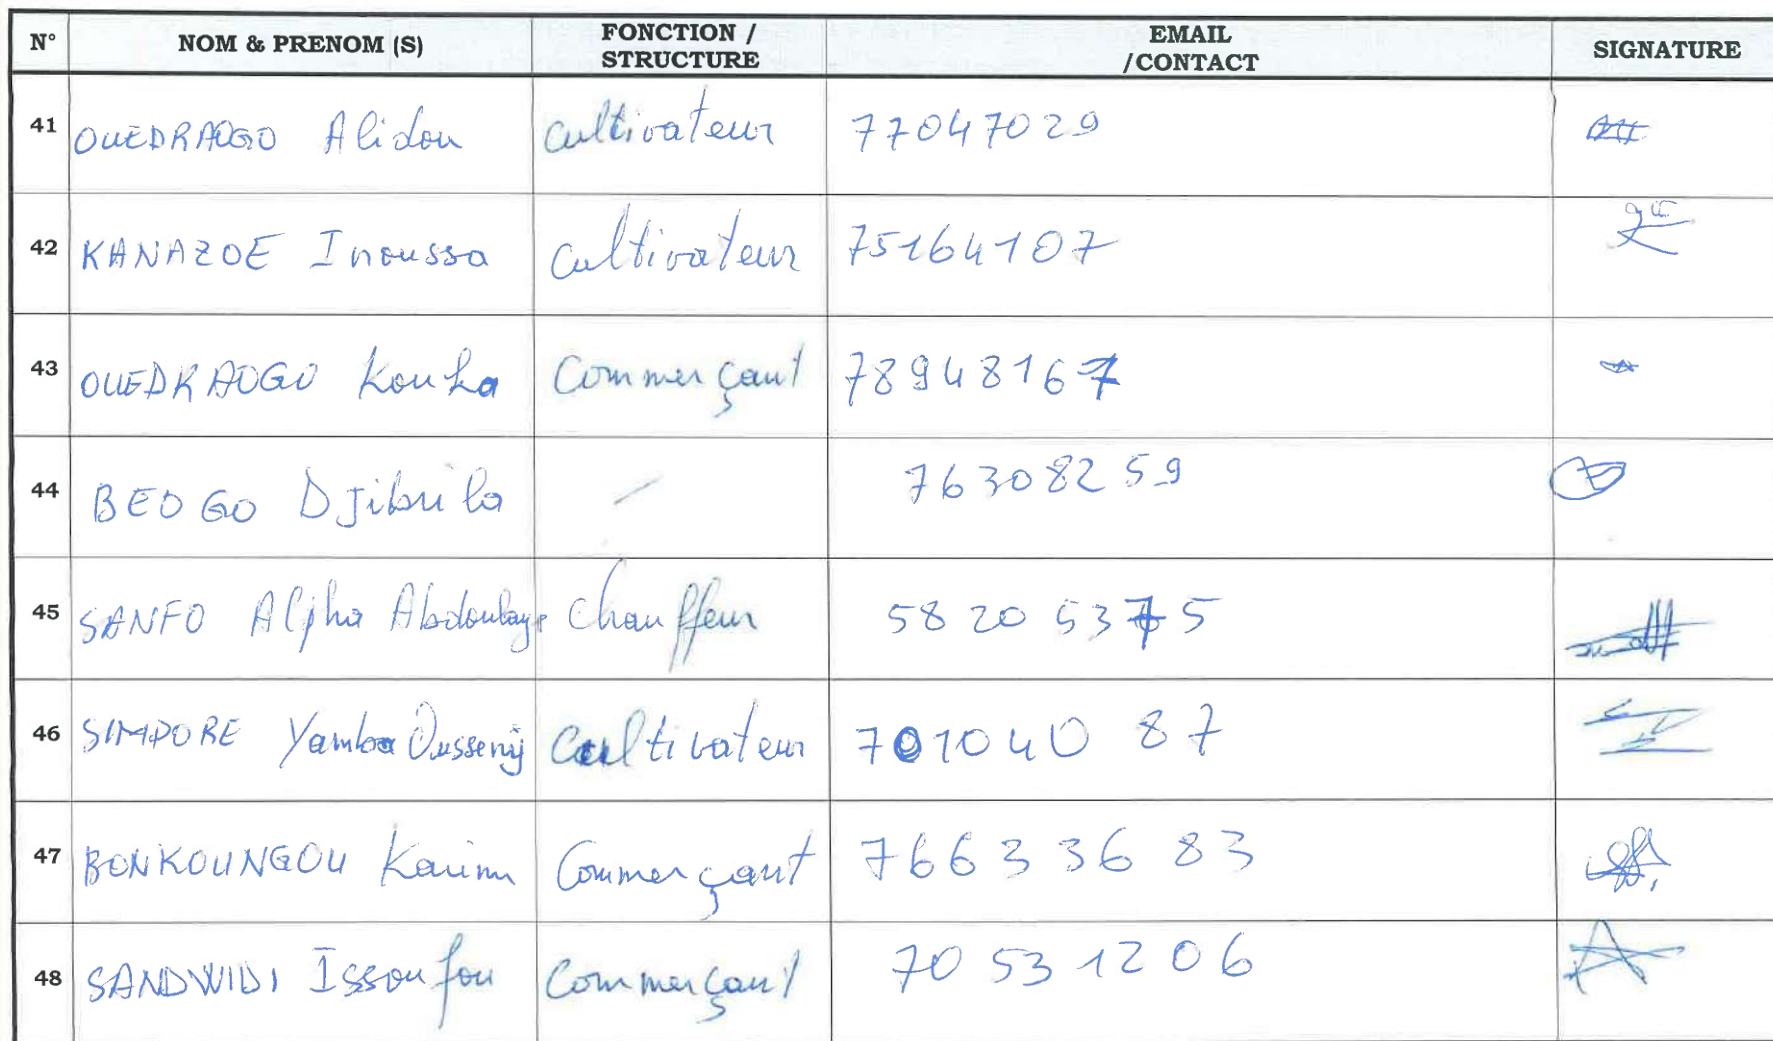 N° NOM & PRENOM (S) FONCTION / STRUCTURE EMAIL /CONTACT SIGNATURE
41 OUEDRAOGO Alidou Cultivateur 77047029
42 KANAZOE Inoussa Cultivateur 75164107
43 OUEDRAOGO Kouka Commerçant 78948167
44 BEOGO Djibrila / 76308259
45 SANFO Alpha Abdoulaye Chauffeur 58 20 53 75
46 SIMPORE Yamba Ousseny Cultivateur 701040 87
47 BONKOUNGOU Karim Commerçant 766336 83
48 SANDWIDI Issoufou Commerçant 70 53 12 06